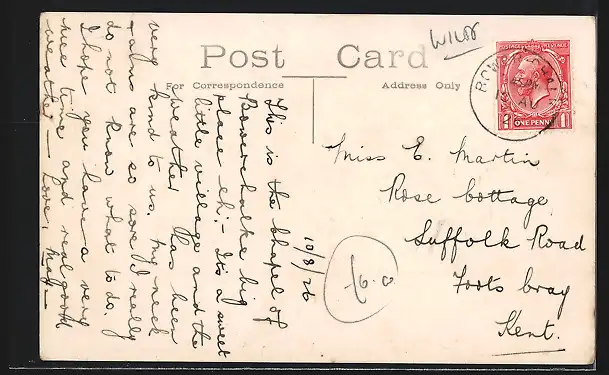 WILTS
Post Card
For Correspondence
Address Only
POSTAGE REVENUE
ONE PENNY
1
10/8/26
This is the Chapel of
Bowerchalke big
place eh:- Its a sweet
little village and the
weather has been
very kind to us. My neck
& arms are so sore I really
do not know what to do.
I hope you have a very
nice time and real good
weather — Love, May
Miss E. Martin
Rose Cottage
Suffolk Road
Foots Cray
Kent.